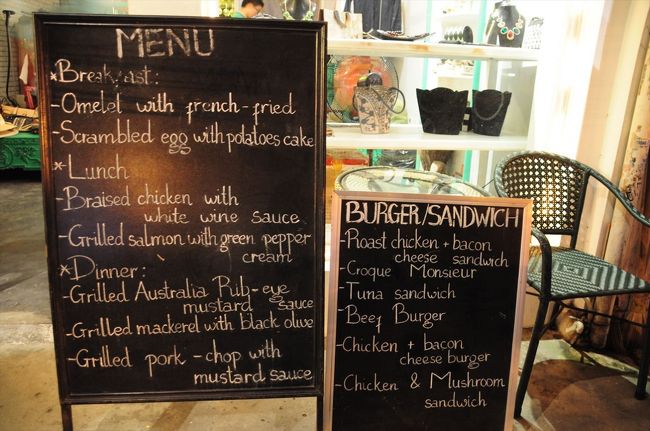 MENU
*Breakfast:
-Omelet with french-fried
-Scrambled egg with potatoes cake
*Lunch
-Braised chicken with
white wine sauce
-Grilled salmon with green pepper
cream
*Dinner:
-Grilled Australia Rib-eye
mustard sauce
-Grilled mackerel with black olive
-Grilled pork-chop with
mustard sauce
BURGER/SANDWICH
-Roast chicken + bacon
cheese sandwich
-Croque Monsieur
-Tuna sandwich
-Beef Burger
-Chicken + bacon
cheese burger
-Chicken & Mushroom
sandwich